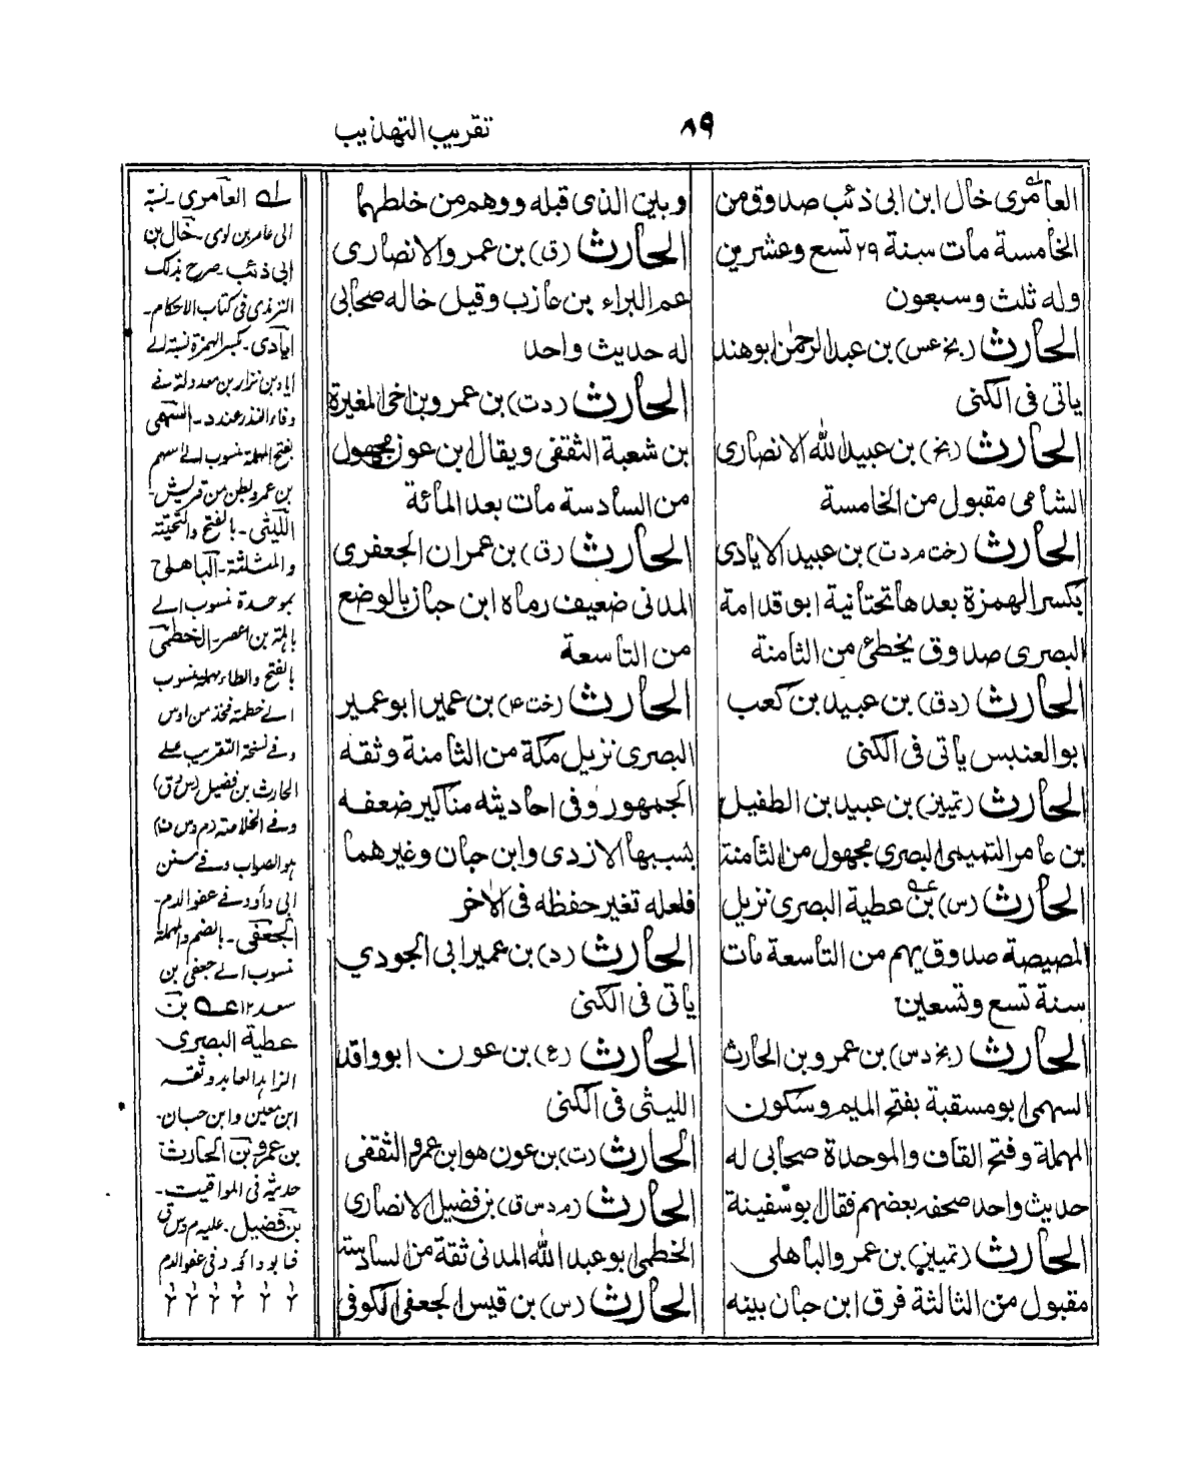 ٨٩
تقريب التهذيب
العامرى خال ابن ابى ذئب صدوق من
الخامسة مات سنة ٢٩ تسع وعشرين
وله ثلث وسبعون
الحارث (بخ عس) بن عبد الرحمن ابوهند
ياتى فى الكنى
الحارث (بخ) بن عبيد الله الانصارى
الشامى مقبول من الخامسة
الحارث (خت م د ت) بن عبيد الايادى
بكسر الهمزة بعدها تحتانية ابو قدامة
البصرى صدوق يخطئ من الثامنة
الحارث (د ق) بن عبيد بن كعب
ابو العنبس ياتى فى الكنى
الحارث (تمييز) بن عبيد بن الطفيل
بن عامر التميمى البصرى مجهول من الثامنة
الحارث (س) بن عطية البصرى نزيل
المصيصة صدوق يهم من التاسعة مات
سنة تسع وتسعين
الحارث (بخ د س) بن عمرو بن الحارث
السهمى ابو مسقبة بفتح الميم وسكون
المهملة وفتح القاف والموحدة صحابى له
حديث واحد صحفه بعضهم فقال بوسفينة
الحارث (تمييز) بن عمرو الباهلى
مقبول من الثالثة فرق ابن حبان بينه
وبين الذى قبله ووهم من خلطهما
الحارث (ق) بن عمرو الانصارى
عم البراء بن عازب وقيل خاله صحابى
له حديث واحد
الحارث (د ت) بن عمرو بن اخى المغيرة
بن شعبة الثقفى ويقال ابن عوز مجهول
من السادسة مات بعد المائة
الحارث (ق) بن عمران الجعفرى
المدنى ضعيف رماه ابن حبان بالوضع
من التاسعة
الحارث (خت ٤) بن عمير ابو عمير
البصرى نزيل مكة من الثامنة وثقه
الجمهور وفى احاديثه مناكير ضعفه
بسببها الازدى وابن حبان وغيرهما
فلعله تغير حفظه فى الآخر
الحارث (د) بن عمير ابى الجودي
ياتى فى الكنى
الحارث (ع) بن عوف ابو واقد
الليثى فى الكنى
الحارث (ت) بن عون هو ابن عمرو الثقفى
الحارث (م د س ق) بن فضيل الانصارى
الخطمى ابو عبد الله المدنى ثقة من السادسة
الحارث (س) بن قيس الجعفى الكوفى
له العامرى۔ نسبة
الى عامر بن لوى۔ خال بن
ابى ذئب۔ صرح بذلك
الترمذى فى كتاب الاحكام۔
ايادى۔ بكسر الهمزة نسبة الى
اياد بن نزار بن معد
السهمى
بفتح المهملة منسوب الى سهم
بن عمرو بطن من قريش۔
الليثى۔ بالفتح والتحتية
والمثلثة۔ الباهلى
بموحدة منسوب الى
باهلة بن اعصر۔ الخطمى
بالفتح والطاء مهملة منسوب
الى خطمة فخذ من اوس
وفى نسخة التقريب على
الحارث بن فضيل (س ق)
وفى الخلاصة (م د س)
هو الصواب وفى سنن
ابى داؤد فى عفو الدم۔
الجعفى۔ بالضم والمهملة
منسوب الى جعفى بن
سعد ١٢ عه بن
عطية البصرى
الزاهد العابد وثقه
ابن معين وابن حبان۔
بن عمرو بن الحارث
حديثه فى المواقيت۔
بن فضيل۔ عليه م د س ق
فابو داؤد فى عفو الدم